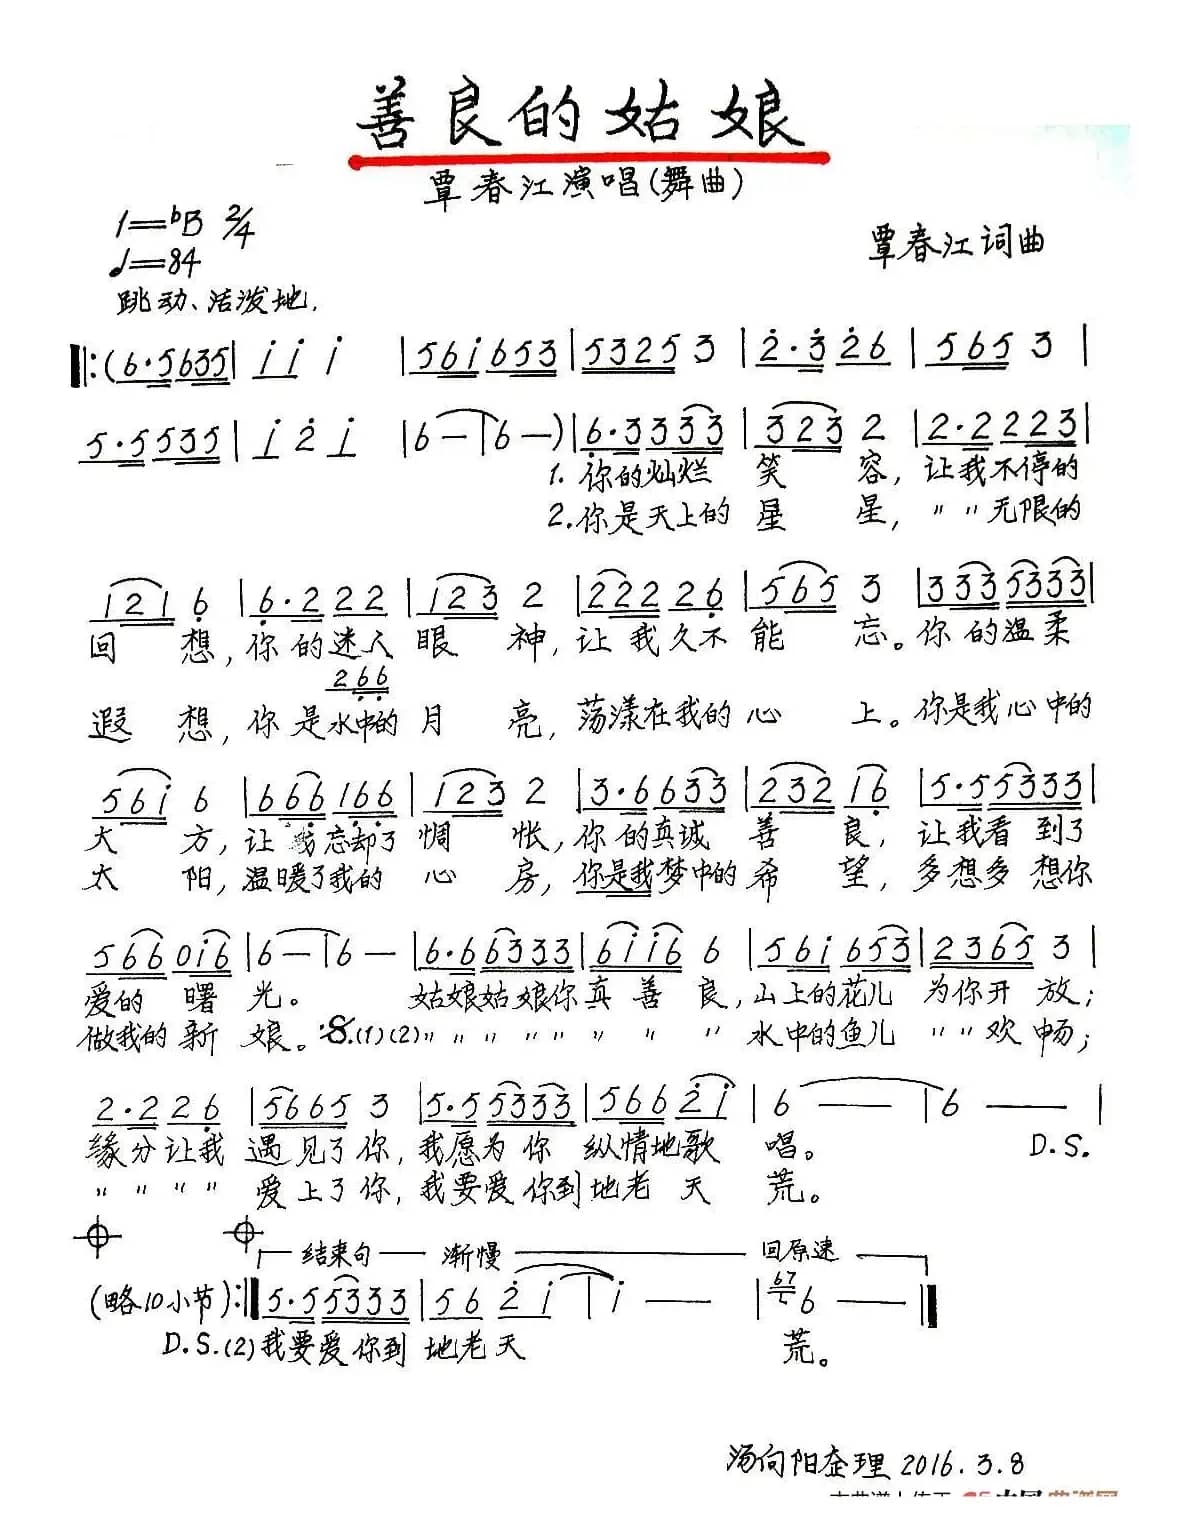 善良的姑娘
覃春江演唱(舞曲)
1=♭B 2/4
覃春江词曲
♩=84
跳动、活泼地.
‖:(6·5635|i i i |561653|53253|2·326|5653|
5·5535|i 2 i |6—|6—)|6·33333|3232|2·2223|
1. 你的灿烂 笑 容, 让我不停的
2. 你是天上的 星 星, 〃 〃 无限的
1216|6·222|1232|222226|5653|3335333|
回 想, 你的迷人 眼 神, 让我久不能 忘。你的温柔
266
遐 想, 你是水中的月 亮, 荡漾在我的心 上。你是我心中的
561 6|666166|1232|3·6633|23216|5·55333|
大 方, 让我忘却了 惆 怅, 你的真诚 善 良, 让我看到了
太 阳, 温暖了我的 心 房, 你是我梦中的希 望, 多想多想你
566016|6—|6—|6·66333|61166|561653|23653|
爱的 曙 光。 姑娘姑娘你真善良, 山上的花儿 为你开放;
做我的新 娘。:S.(1)(2)〃 〃 〃 〃 〃 〃 〃 〃 水中的鱼儿 〃 〃 欢畅;
2·226|56653|5·55333|56621|6——|6——|
缘分让我 遇见了你, 我愿为你 纵情地歌 唱。 D.S.
〃 〃 〃 〃 爱上了你, 我要爱你到地老天 荒。
结束句 渐慢 回原速
(略10小节):‖5·55333|5621|1—|67 6—‖
D.S.(2)我要爱你到 地老天 荒。
汤向阳整理 2016.3.8